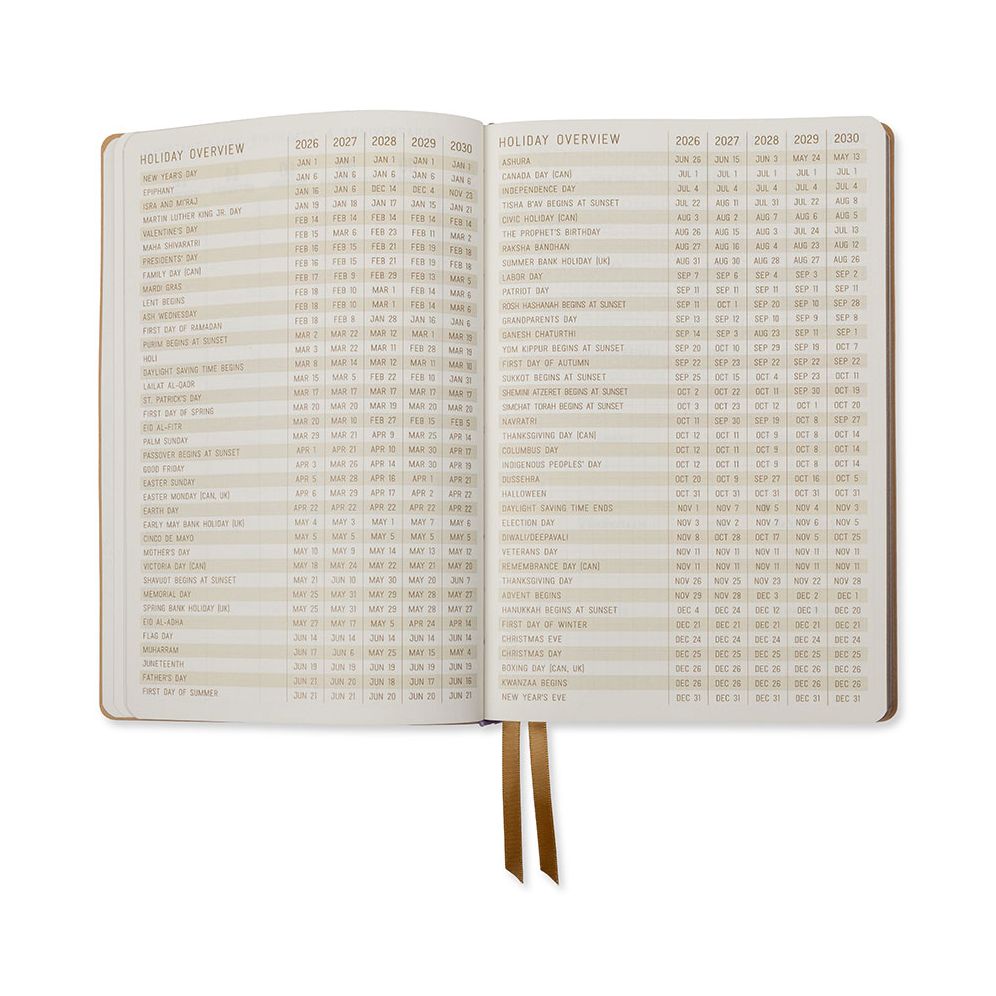 HOLIDAY OVERVIEW 2026 2027 2028 2029 2030
NEW YEAR'S DAY JAN 1 JAN 1 JAN 1 JAN 1 JAN 1
EPIPHANY JAN 6 JAN 6 JAN 6 JAN 6 JAN 6
ISRA AND MI'RAJ JAN 16 JAN 6 DEC 14 DEC 4 NOV 23
MARTIN LUTHER KING JR. DAY JAN 19 JAN 18 JAN 17 JAN 15 JAN 21
VALENTINE'S DAY FEB 14 FEB 14 FEB 14 FEB 14 FEB 14
MAHA SHIVARATRI FEB 15 MAR 6 FEB 23 FEB 11 MAR 2
PRESIDENTS' DAY FEB 16 FEB 15 FEB 21 FEB 19 FEB 18
FAMILY DAY (CAN) FEB 16 FEB 15 FEB 21 FEB 19 FEB 18
MARDI GRAS FEB 17 FEB 9 FEB 29 FEB 13 MAR 5
LENT BEGINS FEB 18 FEB 10 MAR 1 FEB 14 MAR 6
ASH WEDNESDAY FEB 18 FEB 10 MAR 1 FEB 14 MAR 6
FIRST DAY OF RAMADAN FEB 18 FEB 8 JAN 28 JAN 16 JAN 6
PURIM BEGINS AT SUNSET MAR 2 MAR 22 MAR 12 MAR 1 MAR 19
HOLI MAR 3 MAR 22 MAR 11 FEB 28 MAR 19
DAYLIGHT SAVING TIME BEGINS MAR 8 MAR 14 MAR 12 MAR 11 MAR 10
LAILAT AL-QADR MAR 15 MAR 5 FEB 22 FEB 10 JAN 31
ST. PATRICK'S DAY MAR 17 MAR 17 MAR 17 MAR 17 MAR 17
FIRST DAY OF SPRING MAR 20 MAR 20 MAR 20 MAR 20 MAR 20
EID AL-FITR MAR 20 MAR 10 FEB 27 FEB 15 FEB 5
PALM SUNDAY MAR 29 MAR 21 APR 9 MAR 25 APR 14
PASSOVER BEGINS AT SUNSET APR 1 APR 21 APR 10 MAR 30 APR 17
GOOD FRIDAY APR 3 MAR 26 APR 14 MAR 30 APR 19
EASTER SUNDAY APR 5 MAR 28 APR 16 APR 1 APR 21
EASTER MONDAY (CAN, UK) APR 6 MAR 29 APR 17 APR 2 APR 22
EARTH DAY APR 22 APR 22 APR 22 APR 22 APR 22
EARLY MAY BANK HOLIDAY (UK) MAY 4 MAY 3 MAY 1 MAY 7 MAY 6
CINCO DE MAYO MAY 5 MAY 5 MAY 5 MAY 5 MAY 5
MOTHER'S DAY MAY 10 MAY 9 MAY 14 MAY 13 MAY 12
VICTORIA DAY (CAN) MAY 18 MAY 24 MAY 22 MAY 21 MAY 20
SHAVUOT BEGINS AT SUNSET MAY 21 JUN 10 MAY 30 MAY 20 JUN 7
MEMORIAL DAY MAY 25 MAY 31 MAY 29 MAY 28 MAY 27
SPRING BANK HOLIDAY (UK) MAY 25 MAY 31 MAY 29 MAY 28 MAY 27
EID AL-ADHA MAY 27 MAY 17 MAY 5 APR 24 APR 14
FLAG DAY JUN 14 JUN 14 JUN 14 JUN 14 JUN 14
MUHARRAM JUN 17 JUN 6 MAY 25 MAY 15 MAY 4
JUNETEENTH JUN 19 JUN 19 JUN 19 JUN 19 JUN 19
FATHER'S DAY JUN 21 JUN 20 JUN 18 JUN 17 JUN 16
FIRST DAY OF SUMMER JUN 21 JUN 21 JUN 20 JUN 21 JUN 21
HOLIDAY OVERVIEW 2026 2027 2028 2029 2030
ASHURA JUN 26 JUN 15 JUN 3 MAY 24 MAY 13
CANADA DAY (CAN) JUL 1 JUL 1 JUL 1 JUL 1 JUL 1
INDEPENDENCE DAY JUL 4 JUL 4 JUL 4 JUL 4 JUL 4
TISHA B'AV BEGINS AT SUNSET JUL 22 AUG 11 JUL 31 JUL 21 AUG 8
CIVIC HOLIDAY (CAN) AUG 3 AUG 2 AUG 7 AUG 6 AUG 5
THE PROPHET'S BIRTHDAY AUG 26 AUG 15 AUG 4 JUL 24 JUL 13
RAKSHA BANDHAN AUG 27 AUG 16 AUG 4 AUG 23 AUG 12
SUMMER BANK HOLIDAY (UK) AUG 31 AUG 30 AUG 28 AUG 27 AUG 26
LABOR DAY SEP 7 SEP 6 SEP 4 SEP 3 SEP 2
PATRIOT DAY SEP 11 SEP 11 SEP 11 SEP 11 SEP 11
ROSH HASHANAH BEGINS AT SUNSET SEP 11 OCT 1 SEP 20 SEP 10 SEP 28
GRANDPARENTS DAY SEP 13 SEP 12 SEP 10 SEP 9 SEP 8
GANESH CHATURTHI SEP 14 SEP 3 AUG 23 SEP 11 SEP 1
YOM KIPPUR BEGINS AT SUNSET SEP 20 OCT 10 SEP 29 SEP 19 OCT 7
FIRST DAY OF AUTUMN SEP 22 SEP 23 SEP 22 SEP 22 SEP 22
SUKKOT BEGINS AT SUNSET SEP 25 OCT 15 OCT 4 SEP 23 OCT 11
SHEMINI ATZERET BEGINS AT SUNSET OCT 2 OCT 22 OCT 11 SEP 30 OCT 19
SIMCHAT TORAH BEGINS AT SUNSET OCT 3 OCT 23 OCT 12 OCT 1 OCT 20
NAVRATRI OCT 11 SEP 30 SEP 19 OCT 8 SEP 28
THANKSGIVING DAY (CAN) OCT 12 OCT 11 OCT 9 OCT 8 OCT 14
COLUMBUS DAY OCT 12 OCT 11 OCT 9 OCT 8 OCT 14
INDIGENOUS PEOPLES' DAY OCT 12 OCT 11 OCT 9 OCT 8 OCT 14
DUSSEHRA OCT 20 OCT 9 SEP 27 OCT 16 OCT 5
HALLOWEEN OCT 31 OCT 31 OCT 31 OCT 31 OCT 31
DAYLIGHT SAVING TIME ENDS NOV 1 NOV 7 NOV 5 NOV 4 NOV 3
ELECTION DAY NOV 3 NOV 2 NOV 7 NOV 6 NOV 5
DIWALI/DEEPAVALI NOV 8 OCT 28 OCT 17 NOV 5 OCT 25
VETERANS DAY NOV 11 NOV 11 NOV 11 NOV 11 NOV 11
REMEMBRANCE DAY (CAN) NOV 11 NOV 11 NOV 11 NOV 11 NOV 11
THANKSGIVING DAY NOV 26 NOV 25 NOV 23 NOV 22 NOV 28
ADVENT BEGINS NOV 29 NOV 28 DEC 3 DEC 2 DEC 1
HANUKKAH BEGINS AT SUNSET DEC 4 DEC 24 DEC 12 DEC 1 DEC 20
FIRST DAY OF WINTER DEC 21 DEC 21 DEC 21 DEC 21 DEC 21
CHRISTMAS EVE DEC 24 DEC 24 DEC 24 DEC 24 DEC 24
CHRISTMAS DAY DEC 25 DEC 25 DEC 25 DEC 25 DEC 25
BOXING DAY (CAN, UK) DEC 26 DEC 26 DEC 26 DEC 26 DEC 26
KWANZAA BEGINS DEC 26 DEC 26 DEC 26 DEC 26 DEC 26
NEW YEAR'S EVE DEC 31 DEC 31 DEC 31 DEC 31 DEC 31